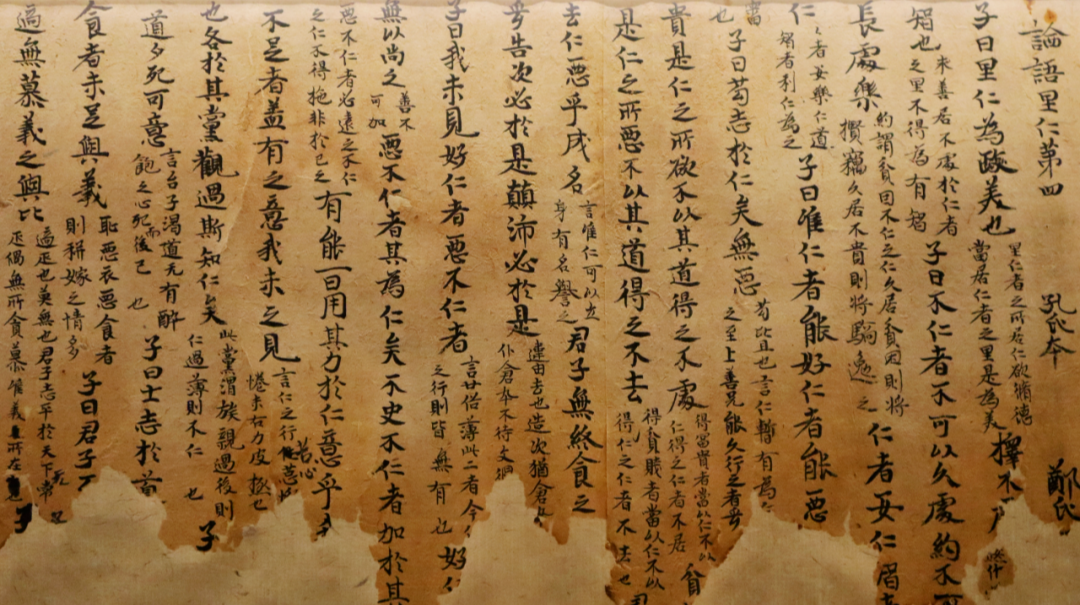 論語里仁第四 孔氏本 鄭氏
子曰里仁為美也 里仁者之所居仁欲循德 當居仁者之里是為美 擇不
智也 求善居不處於仁者 之里不得為有智 子曰不仁者不可以久處約不可
長處樂 約謂貧困不仁之仁久居貧困則將 攢竊久居不貴則將驕逸之 仁者安仁
仁 者安樂仁道 智者利仁為之 子曰惟仁者能好仁者能惡
也 子曰苟志於仁矣無惡 苟比且也言仁暫有為 之至上善况能久行之者乎
貴是仁之所欲不以其道得之不處 得富貴者當以仁不以 仁得之仁者不居 貧
是仁之所惡不以其道得之不去 得貧賤者當以仁不以 得仁之仁者不去也 君
去仁惡乎成名 言惟仁可以立 身有名譽之 君子無終食之
告次必於是顛沛必於是 違由去也造次猶倉 仆倉卒不待文
子曰我未見好仁者惡不仁者 言廿俗薄此二者今 之行則皆無有也 好仁
無以尚之 善不 可加 惡不仁者其為仁矣不史不仁者加於其
惡不仁者必遠之不仁 之仁不得施非於己之 有能一日用其力於仁意乎
不足者盖有之意我未之見 言仁之行
也各於其黨觀過斯知仁矣 此黨謂族親過後則 仁過薄則不仁也 子
道夕死可意 言君子渴道无有醉 飽之心死而後已也 子曰士志於道
食者未足與義 恥惡衣惡食者 則耕嫁之情多 子曰君子
適無慕義之與比 適疋也莫無也君子志平於天下常 疋偶無所貪慕唯義所在也 子